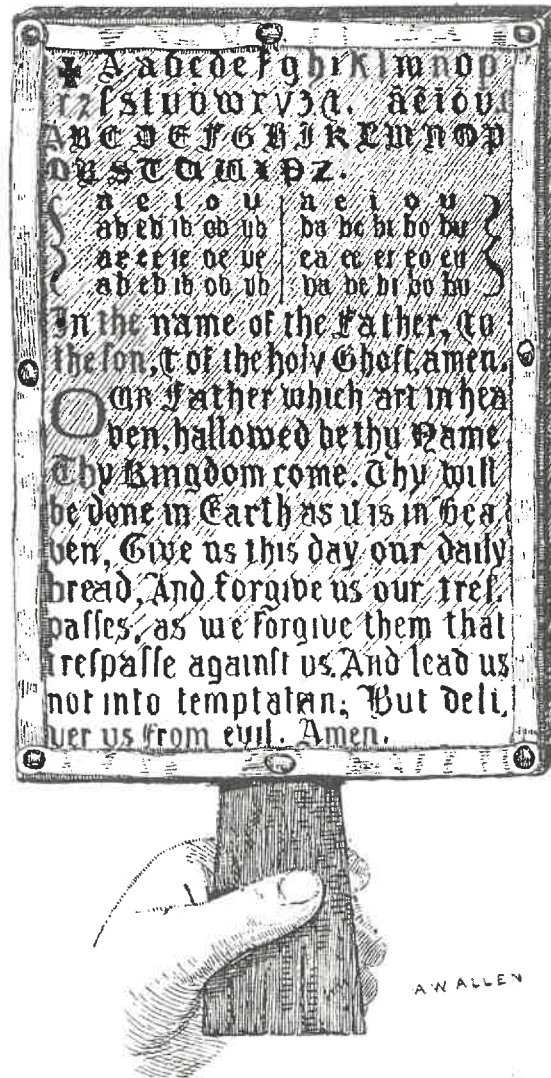 ✠ A a b c d e f g h i k l m n o p
r ꝛ ſ s t u v w x y z &. a e i o u
A B C D E F G H I K L M N O P
Q R S T U W X Y Z.
a e i o u a e i o u
ab eb ib ob ub ba be bi bo bu
ca ce ci co cu
ab eb ib ob ub da de di do du
In the name of the Father, & to
the ſon, & of the holy Ghoſt, amen.
OUR Father which art in hea
ven, hallowed be thy Name
Thy Kingdom come. Thy will
be done in Earth as it is in Hea
ven, Give us this day our daily
bread, And forgive us our treſ.
paſſes, as we forgive them that
treſpaſſe againſt us. And lead us
not into temptation; But deli,
ver us from evil. Amen.
A W ALLEN